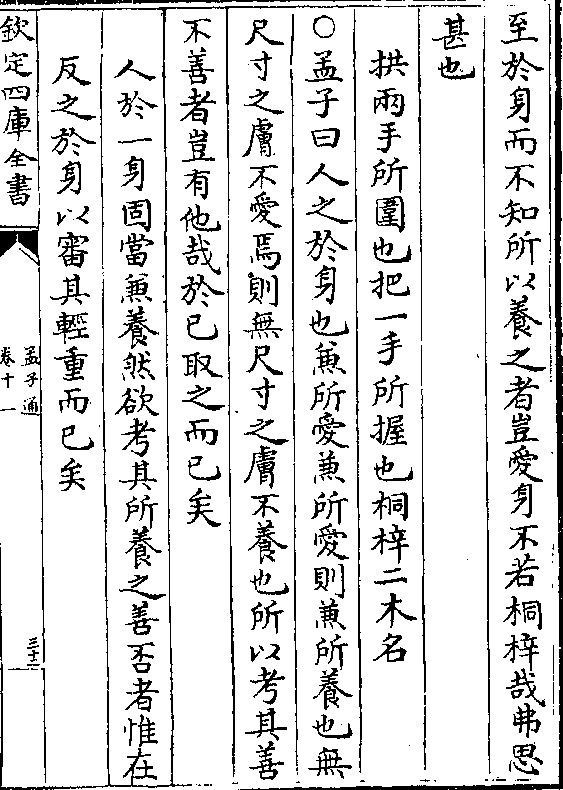 至於身而不知所以養之者豈愛身不若桐梓哉弗思
甚也
拱兩手所圍也把一手所握也桐梓二木名
○孟子曰人之於身也兼所愛兼所愛則兼所養也無
尺寸之膚不愛焉則無尺寸之膚不養也所以考其善
不善者豈有他哉於已取之而已矣
人於一身固當兼養然欲考其所養之善否者惟在
反之於身以審其輕重而已矣
欽定四庫全書
孟子通
卷十一
三十二